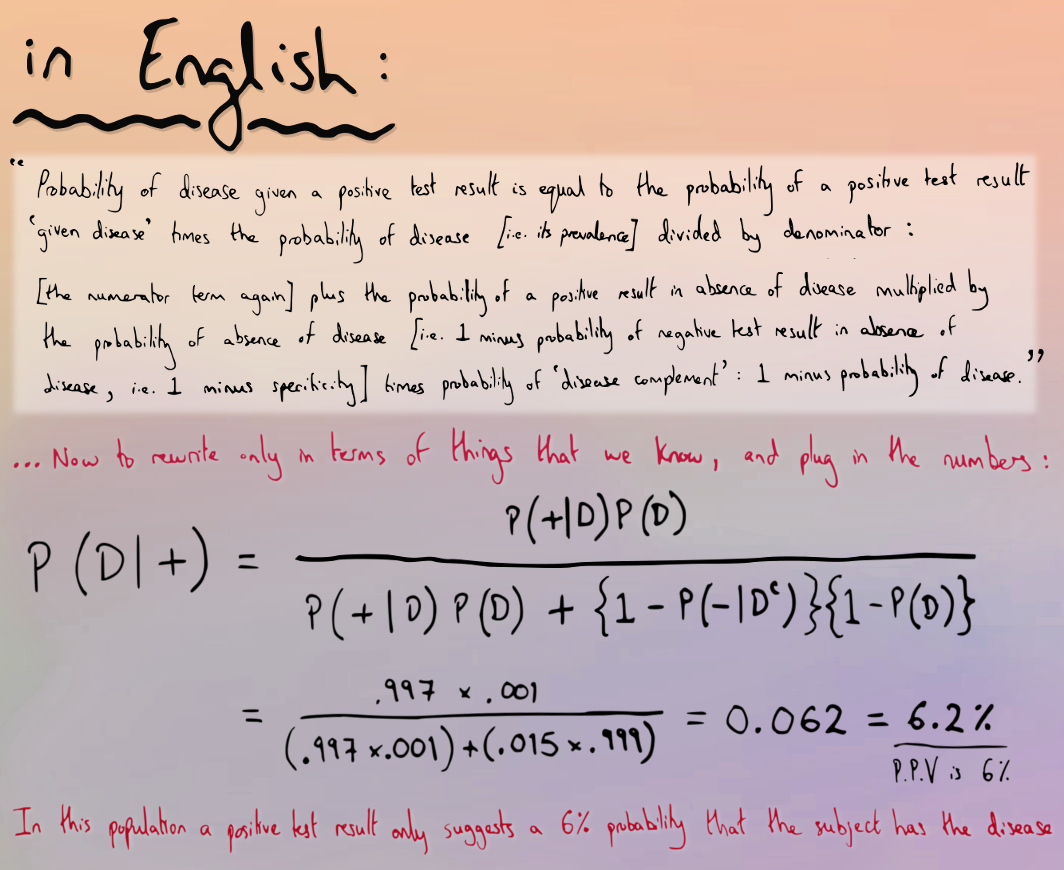 in English:
“Probability of disease given a positive test result is equal to the probability of a positive test result
‘given disease’ times the probability of disease [i.e. its prevalence] divided by denominator :
[the numerator term again] plus the probability of a positive result in absence of disease multiplied by
the probability of absence of disease [i.e. 1 minus probability of negative test result in absence of
disease, i.e. 1 minus specificity] times probability of ‘disease complement’ : 1 minus probability of disease.”
... Now to rewrite only in terms of things that we know, and plug in the numbers :
P(D|+) = P(+|D)P(D) / P(+|D) P(D) + {1 - P(-|Dᶜ)}{1 - P(D)}
= .997 × .001 / (.997 × .001) + (.015 × .999) = 0.062 = 6.2%
P.P.V is 6%
In this population a positive test result only suggests a 6% probability that the subject has the disease